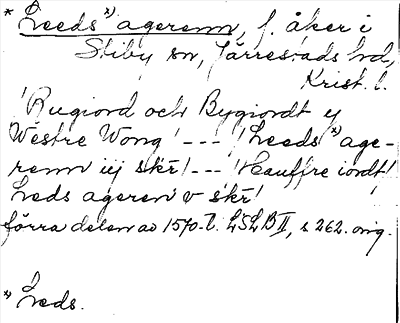 * Leeds x) agerenn, f. åker i
Stiby sn, Järrestads hd,
Krist. l.
'Rugiord och Bygiordt y
Westre Wong' --- 'Leeds x) age-
renn iij skr' --- 'Hauffre iordt'
Leds ageren v skr'
förra delen av 1570-t. LSLB II, s 262. orig.
x) Leds.